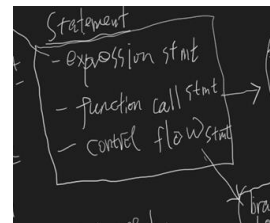 Statement
- expression stmt
- function call stmt
- control flow stmt
bra